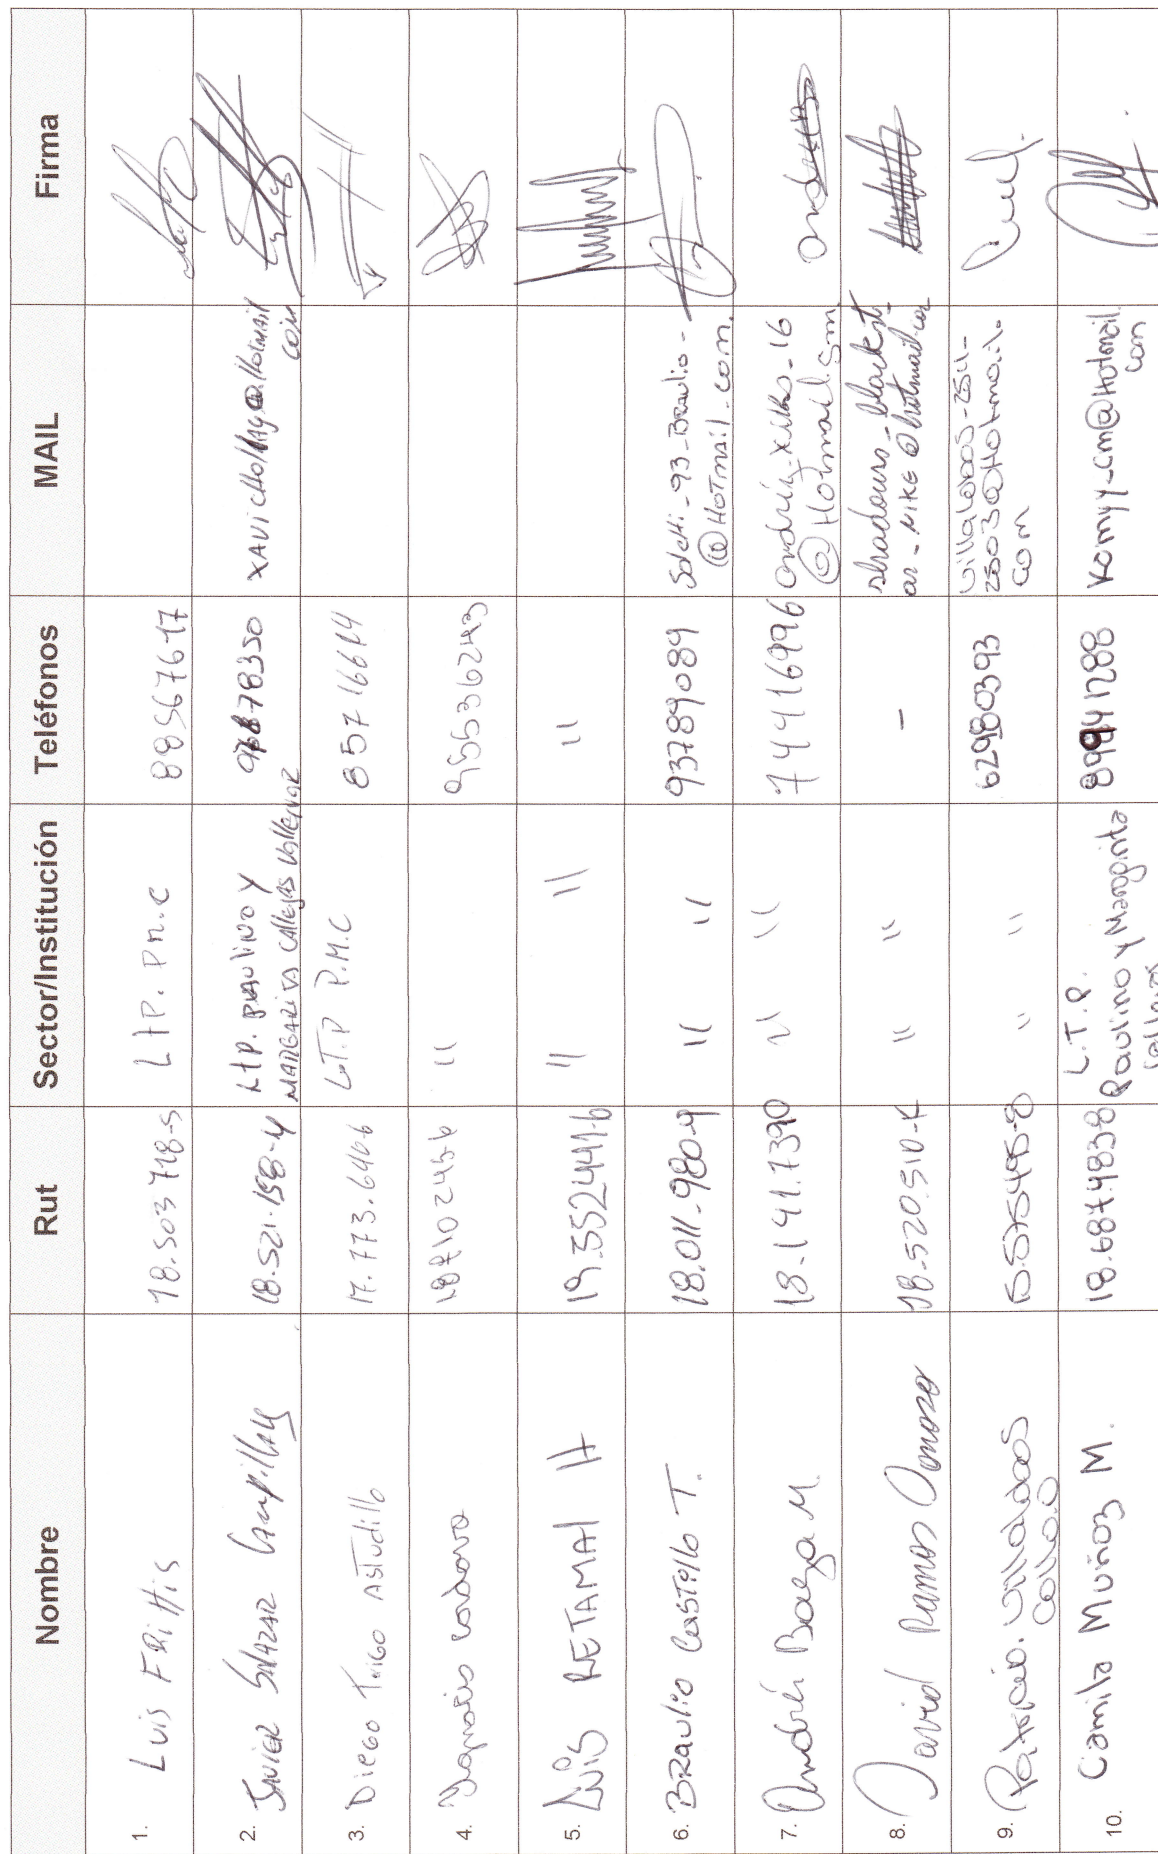 Nombre Rut Sector/Institución Teléfonos MAIL Firma
1. Luis FRittis 18.503718-5 LtP. Pm.C 88567617
2. JAVIER SALAZAR Campillay 18.521.158-4 LtP. PAULINO Y
MARGARITA CAllejAS VAllejos XAVICHOllAy@.Hotmail
com
3. Diego Trigo AStudillo 17.773.646-6 L.T.P P.M.C 85716614
4. Cordova " 95536243
5. LuiS RETAMAl H 19.352441-6 " " "
6. BRAuliO CaSTillo T. 18.011-980-9 " " 93789089 Soletti-93-Braulio-
@HoTmail.com.
7. Andrés Baeza M. 18-141.7390 " " 74416996
@Hotmail.com
8. David Ramos Donoso 18-520.510-K " " - shadows-blackst
ar-MIKE@hotmail.com
9. Patricio. Villalobos
Collao " " 62980393 Villalobos-
2503@Hotmail.
com
10. Camila Muñoz M. 18.6874838 L.T.P.
Paulino y Margarita
Callejas 89941288 Komyy-cm@Hotmail.
com